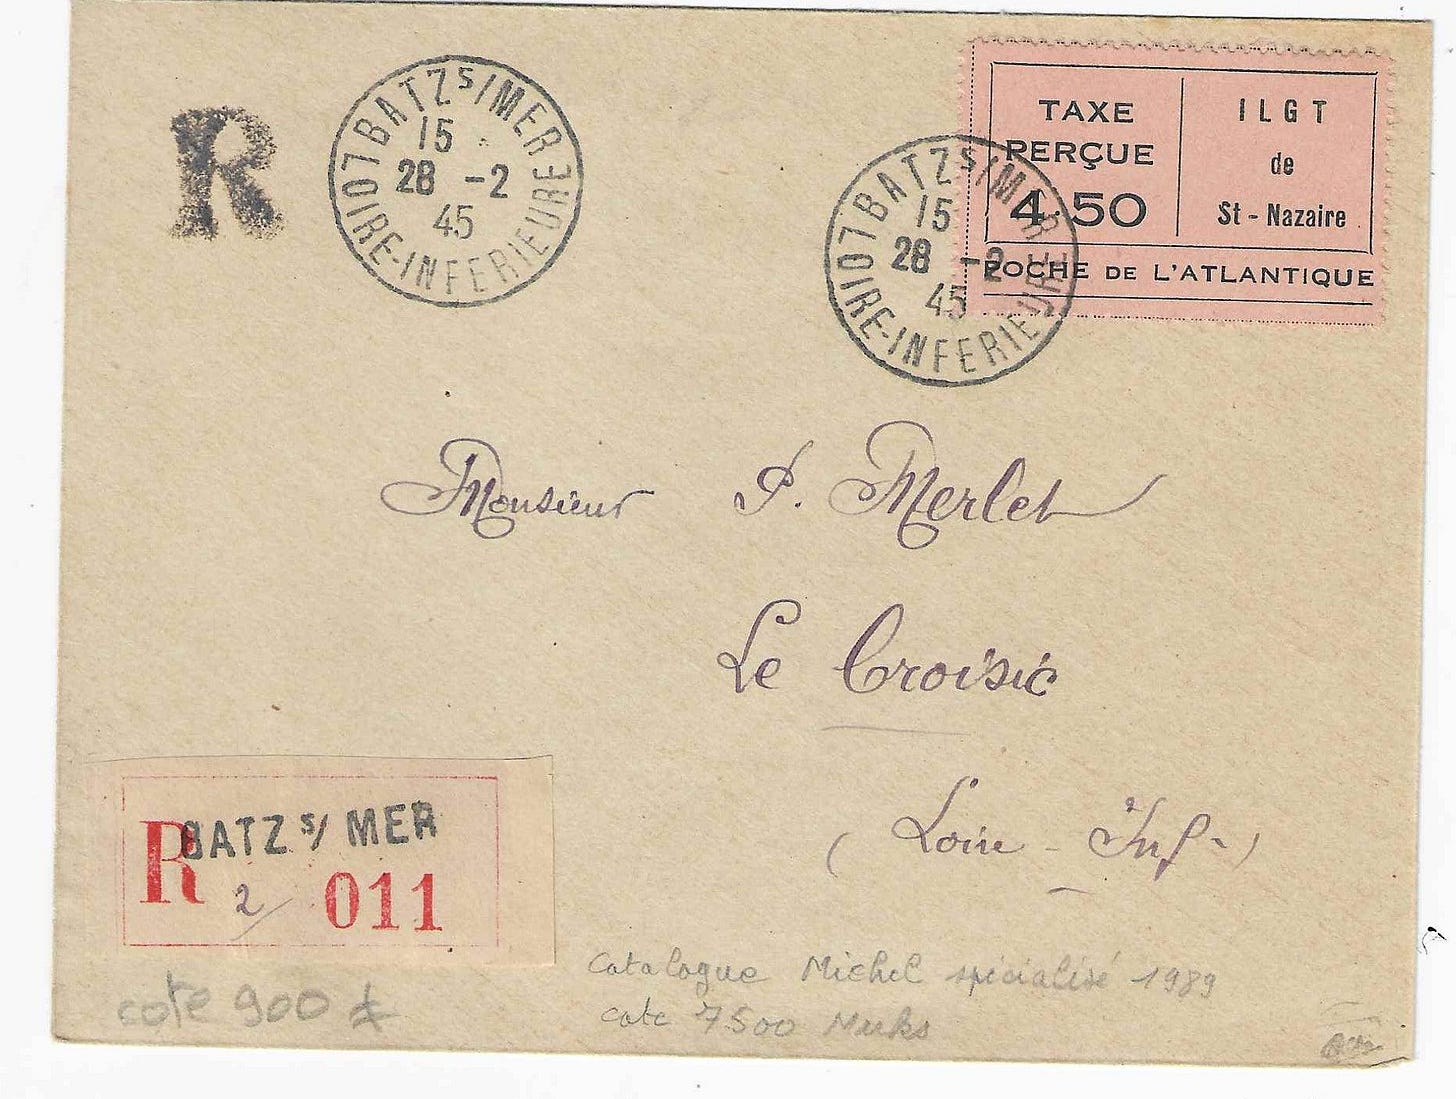 R
BATZ S/MER
15
28 -2
45
LOIRE-INFERIEURE
107
BATZ S/MER
15
28 -2
45
LOIRE-INFERIEURE
107
TAXE
PERÇUE
4.50
ILGT
de
St - Nazaire
POCHE DE L'ATLANTIQUE
Monsieur P. Merlet
Le Croisic
(Loire - Inf-)
R BATZ S/ MER
2/ 011
cote 900
Catalogue Michel spécialisé 1989
cote 7500 Marks